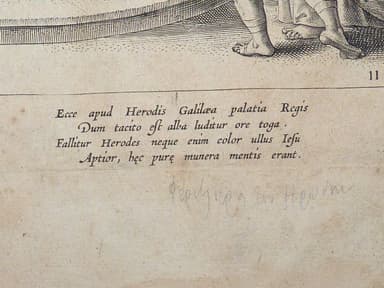 11
Ecce apud Herodis Galilæa palatia Regis
Dum tacito est alba luditur ore toga.
Fallitur Herodes neque enim color ullus Iesu
Aptior, hęc purę munera mentis erant.